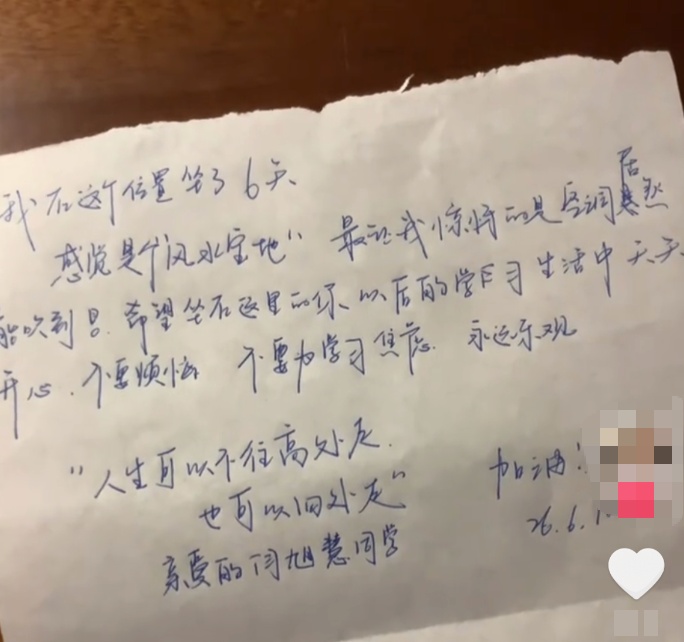 我在这个位置坐了6天
感觉是个"风水宝地" 最让我惊讶的是空调居然
能吹到我.希望坐在这里的你以后的学习生活中天天
开心.不要烦恼 不要为学习焦虑.永远乐观
"人生可以不往高处走.
也可以四处走"
加油!
26.6.1
亲爱的闫旭慧同学